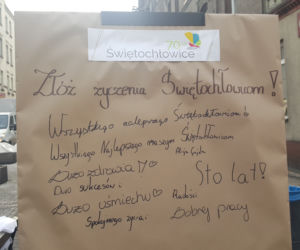 70 lat
Świętochłowice
Złóż życzenia Świętochłowicom!
Wszystkiego najlepszego Świętochłowicom
Wszystkiego Najlepszego naszym Świętochłowicom
Dużo zdrowia!
Dużo sukcesów!
Sto lat!
Dużo uśmiechu
Radości
Spokojnego życia!
Dobrej pracy